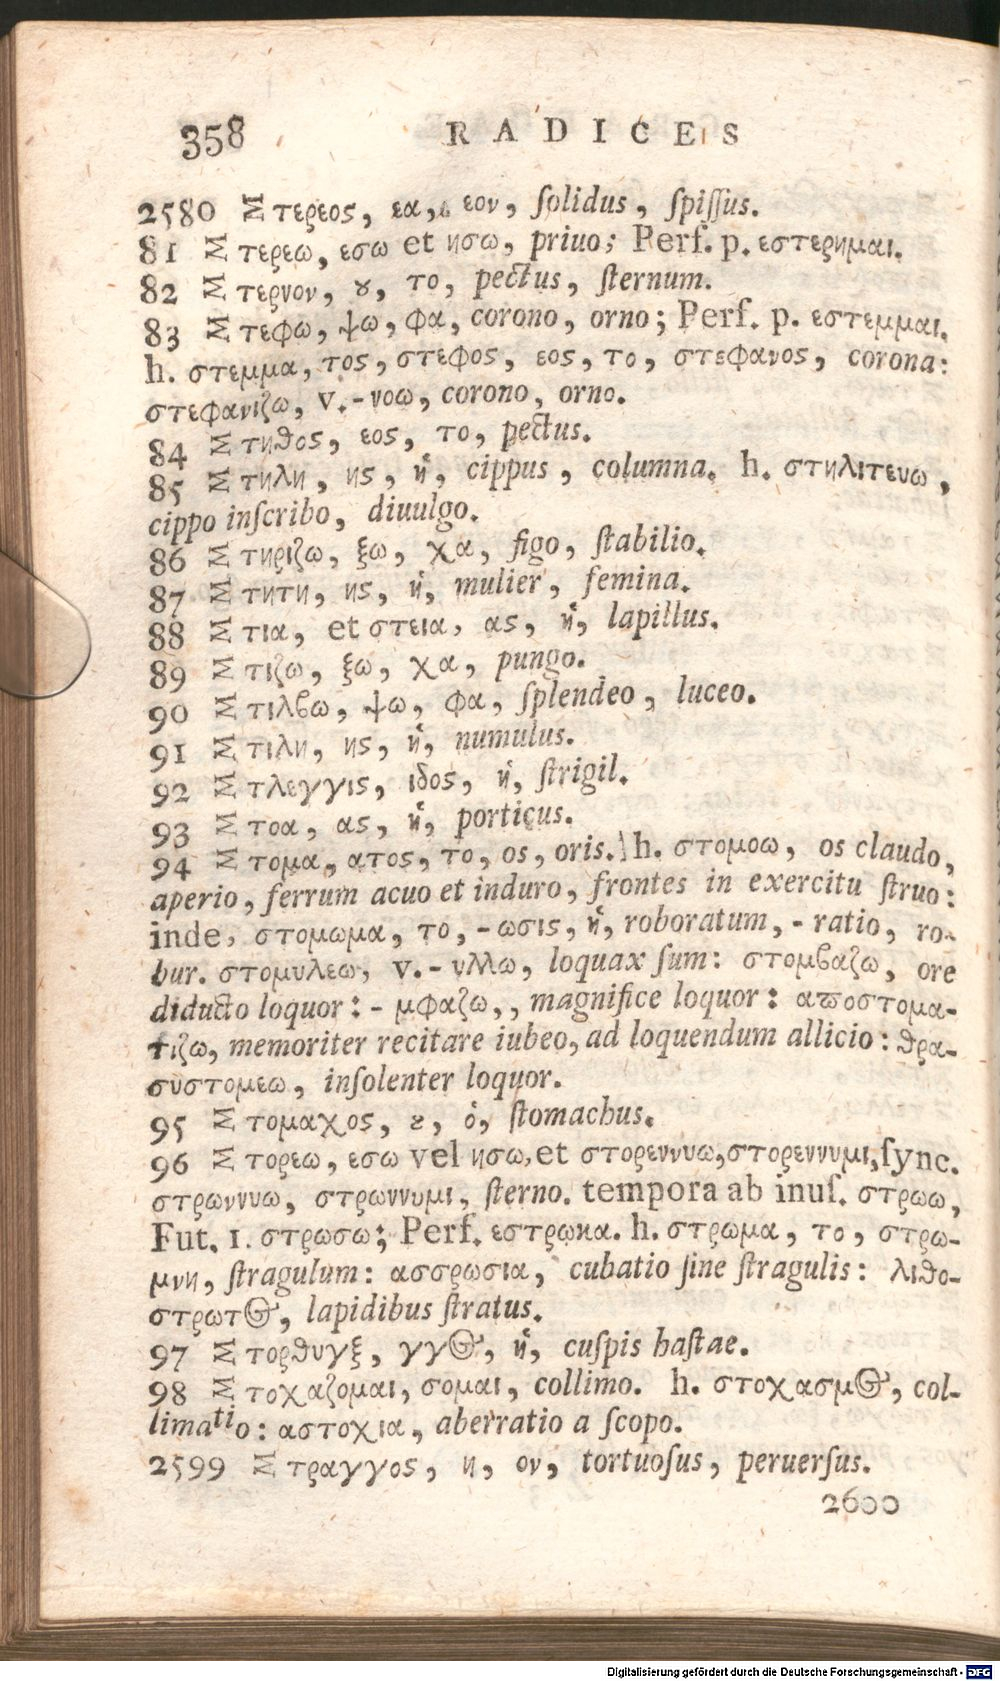 358 RADICES
2580 Στερεος, εα, εον, ſolidus, ſpiſſus.
81 Στερεω, εσω et ησω, priuo; Perf. p. εστερημαι.
82 Στερνον, ȣ, το, pectus, ſternum.
83 Στεφω, ψω, φα, corono, orno; Perf. p. εστεμμαι.
h. στεμμα, τος, στεφος, εος, το, στεφανος, corona:
στεφανιζω, v. -νοω, corono, orno.
84 Στηθος, εος, το, pectus.
85 Στηλη, ης, ἡ, cippus, columna. h. στηλιτευω,
cippo inſcribo, diuulgo.
86 Στηριζω, ξω, χα, figo, ſtabilio.
87 Στητη, ης, ἡ, mulier, femina.
88 Στια, et στεια, ας, ἡ, lapillus.
89 Στιζω, ξω, χα, pungo.
90 Στιλβω, ψω, φα, ſplendeo, luceo.
91 Στιλη, ης, ἡ, numulus.
92 Στλεγγις, ιδος, ἡ, ſtrigil.
93 Στοα, ας, ἡ, porticus.
94 Στομα, ατος, το, os, oris. h. στομοω, os claudo,
aperio, ferrum acuo et induro, frontes in exercitu ſtruo:
inde, στομωμα, το, -ωσις, ἡ, roboratum, -ratio, ro-
bur. στομυλεω, v. -υλλω, loquax ſum: στομβαζω, ore
diducto loquor: -μφαζω,, magnifice loquor: αϖοστομα-
τιζω, memoriter recitare iubeo, ad loquendum allicio: θρα-
συστομεω, inſolenter loquor.
95 Στομαχος, ȣ, ὁ, ſtomachus.
96 Στορεω, εσω vel ησω, et στορεννυω, στορεννυμι, ſync.
στρωννυω, στρωννυμι, ſterno. tempora ab inuſ. στρωω,
Fut. 1. στρωσω; Perf. εστρωκα. h. στρωμα, το, στρω-
μνη, ſtragulum: ασσρωσια, cubatio ſine ſtragulis: λιθο-
στρωτος, lapidibus ſtratus.
97 Στορθυγξ, γγος, ἡ, cuſpis haſtae.
98 Στοχαζομαι, σομαι, collimo. h. στοχασμος, col-
limatio: αστοχια, aberratio a ſcopo.
2599 Στραγγος, η, ον, tortuoſus, peruerſus.
2600
Digitalisierung gefördert durch die Deutsche Forschungsgemeinschaft - DFG